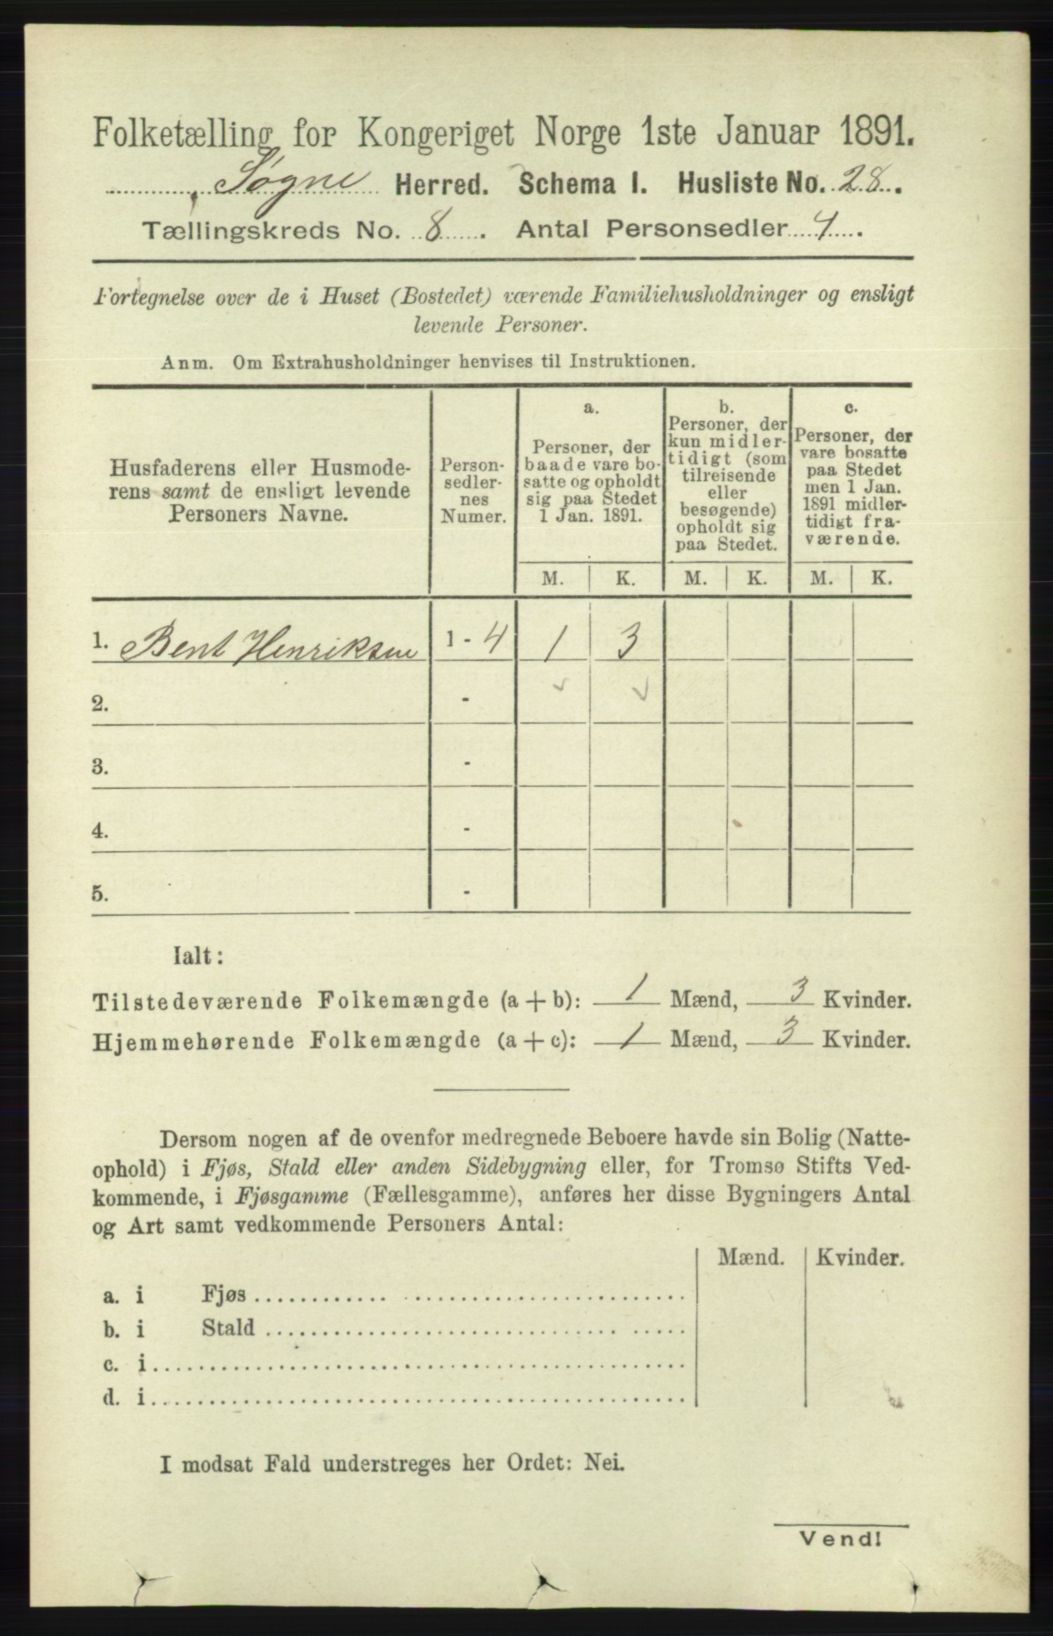 Folketælling for Kongeriget Norge 1ste Januar 1891.
Søgne Herred. Schema I. Husliste No. 28.
Tællingskreds No. 8. Antal Personsedler 4.
Fortegnelse over de i Huset (Bostedet) værende Familiehusholdninger og ensligt
levende Personer.
Anm. Om Extrahusholdninger henvises til Instruktionen.
Husfaderens eller Husmode-
rens samt de ensligt levende
Personers Navne.
Person-
sedler-
nes
Numer.
a.
Personer, der
baade vare bo-
satte og opholdt
sig paa Stedet
1 Jan. 1891.
b.
Personer, der
kun midler-
tidigt (som
tilreisende
eller
besøgende)
opholdt sig
paa Stedet.
c.
Personer, der
vare bosatte
paa Stedet
men 1 Jan.
1891 midler-
tidigt fra-
værende.
M. K. M. K. M. K.
1. Bent Henriksen 1 - 4 1 3
2. -
3. -
4. -
5. -
Ialt:
Tilstedeværende Folkemængde (a + b): 1 Mænd, 3 Kvinder.
Hjemmehørende Folkemængde (a + c): 1 Mænd, 3 Kvinder.
Dersom nogen af de ovenfor medregnede Beboere havde sin Bolig (Natte-
ophold) i Fjøs, Stald eller anden Sidebygning eller, for Tromsø Stifts Ved-
kommende, i Fjøsgamme (Fællesgamme), anføres her disse Bygningers Antal
og Art samt vedkommende Personers Antal:
Mænd. Kvinder.
a. i Fjøs
b. i Stald
c. i
d. i
I modsat Fald understreges her Ordet: Nei.
Vend!